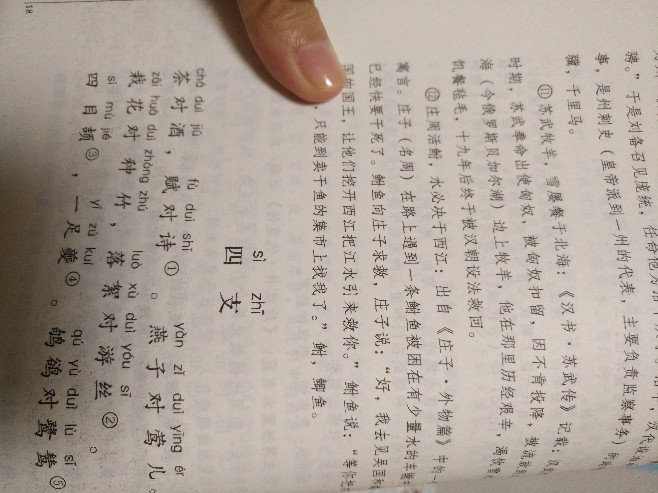 骋。”于是刘备召见庞统，任命他为治
事，是州刺史（皇帝派到一州的代表，主要负责监察事务）的
骥，千里马。
⑪苏武牧羊，雪屡餐于北海：《汉书·苏武传》记载：汉
时期，苏武奉命出使匈奴，被匈奴扣留，因不肯投降，被流放到
海（今俄罗斯贝加尔湖）边上牧羊，他在那里历经艰辛，渴饮雪
饥餐毡毛，十九年后终于被汉朝设法救回。
⑫庄周活鲋，水必决于西江：出自《庄子·外物篇》中的一
寓言。庄子（名周）在路上遇到一条鲋鱼被困在有少量水的车辙
已经快要干死了。鲋鱼向庄子求救，庄子说：“好，我去见吴国和
国的国王，让他们挖开西江把江水引来救你。”鲋鱼说：“等你把
，只能到卖干鱼的集市上找我了。”鲋，鲫鱼。
sì zhī
四支
chá duì jiǔ fù duì shī yàn zǐ duì yīng ér
茶对酒，赋对诗①。燕子对莺儿。
zāi huā duì zhòng zhú luò xù duì yóu sī
栽花对种竹，落絮对游丝②。
sì mù jié yì zú kuí qú yù duì lù sī
四目颉③，一足夔④。鸲鹆对鹭鸶⑤
18